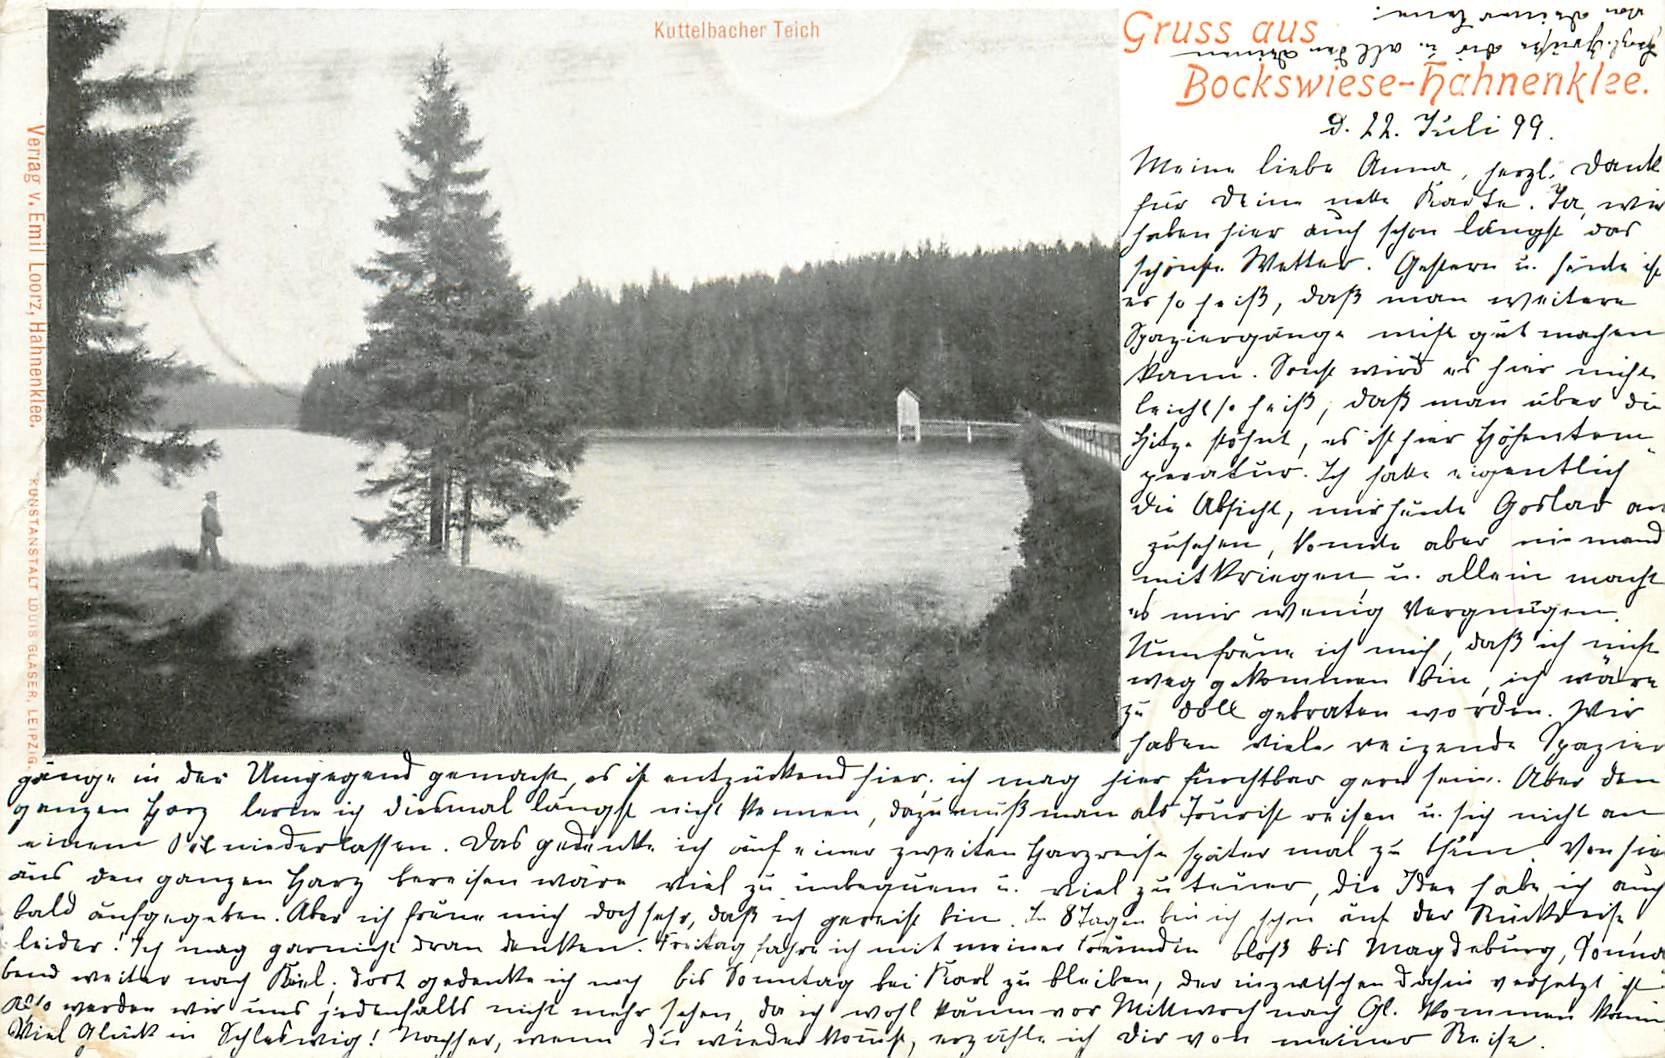 Kuttelbacher Teich
Gruss aus
Bockswiese-Hahnenklee.
Verlag v. Emil Loorz, Hahnenklee.
KUNSTANSTALT LOUIS GLASER, LEIPZIG.
d. 22. Juli 99.
Meine liebe Anna, herzl. Dank
für Deine nette Karte. Ja, wir
haben hier auch schon längst das
schönste Wetter. Gestern u. heute ist
es so heiß, daß man weitere
Spaziergänge nicht gut machen
kann. Sonst wird es hier nicht
leicht so heiß, daß man über die
Hitze stöhnt, es ist hier Höhentem
peratur. Ich hatte eigentlich
die Absicht, mir heute Goslar an
zusehen, konnte aber niemand
mitkriegen u. allein macht
es mir wenig Vergnügen.
Nun freue ich mich, daß ich nicht
weg gekommen bin, ich wäre
zu doll gebraten worden. Wir
haben viele reizende Spazier
gänge in der Umgegend gemacht, es ist entzückend hier, ich mag hier furchtbar gern sein. Aber den
ganzen Harz lerne ich diesmal längst nicht kennen, dazu muß man als Tourist reisen u. sich nicht an
einem Ort niederlassen. Das gedenke ich auf einer zweiten Harzreise später mal zu thun. Von hier
aus den ganzen Harz bereisen wäre viel zu unbequem u. viel zu teuer, die Idee habe ich auch
bald aufgegeben. Aber ich freue mich doch sehr, daß ich gereist bin. In 8 Tagen bin ich schon auf der Rückreise
leider! Ich mag garnicht dran denken. Freitag fahre ich mit meiner Freundin bloß bis Magdeburg, Sonna
bend weiter nach Kiel; dort gedenke ich noch bis Sonntag bei Karl zu bleiben, der inzwischen dahin versetzt ist.
Also werden wir uns jedenfalls nicht mehr sehen, da ich wohl kaum vor Mittwoch nach Gl. kommen kann.
Viel Glück in Schleswig! Nachher, wenn Du wieder kommst, erzähle ich Dir von meiner Reise.
Herzl. Grüße Dir u. all den Deinen
von Deiner